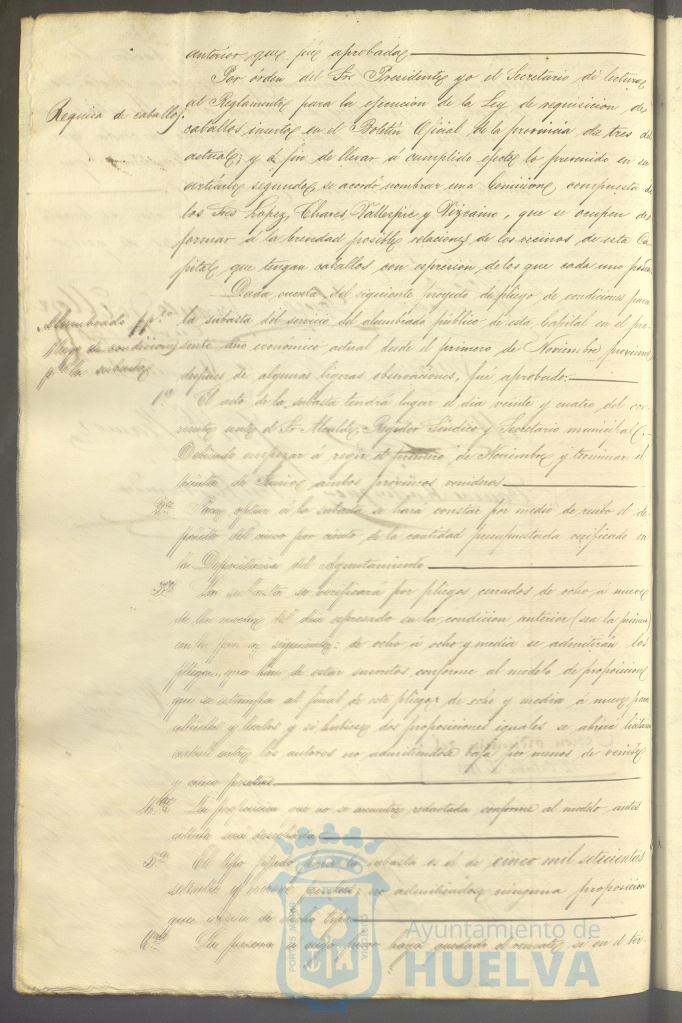 anterior, que fué aprobada
Por órden del Sr. Presidente yo el Secretario di lectura
Requisa de caballos.
al Reglamento para la ejecucion de la Ley de requisicion de
caballos, inserto en el Boletin Oficial de la provincia del tres del
actual, y á fin de llevar á cumplido efecto lo prevenido en su
artículo segundo, se acordó nombrar una Comisione compuesta de
los Sres Lopez, Chares, Vallespir y Vizcaino, que se ocupen de
formar á la brevedad posible relaciones de los vecinos de esta Ca-
pital que tengan caballos con espresion de los que cada uno posea
Dada cuenta del siguiente proyecto de pliego de condiciones para
Alumbrado
pliego de condiciones
pa la subasta
la subasta del servicio del alumbrado público de esta Capital en el pre-
sente año económico actual desde el primero de Noviembre proximo
despues de algunas ligeras observaciones, fué aprobado.
1ª El acto de la subasta tendrá lugar el dia veinte y cuatro del cor-
riente ante el Sr. Alcalde, Regidor Síndico y Secretario municipal
Debiendo empezar á regir el primero de Noviembre y terminar el
treinta de Junio ambos próximos venideros
2ª Para optar á la subasta se hará constar por medio de recibo el de-
pósito del cinco por ciento de la cantidad presupuestada verificado en
la Depositaria del Ayuntamiento
3ª La subasta se verificará por pliegos cerrados de ocho á nueve
de la noche del dia espresado en la condicion anterior (sea la primera)
en la forma siguiente: de ocho á ocho y media se admitirán los
pliegos, que han de estar suscritos conforme al modelo de proposicion
que se estampa al final de este pliego; de ocho y media á nueve para
abrirlos y leerlos y si hubiese dos proposiciones iguales se abrirá licitacion
entre los autores no admitiéndose baja por menos de veinte
y cinco pesetas
4ª La proposicion que no se encuentre redactada conforme al modelo, antes
será desechada
5ª El tipo fijado para la subasta es el de cinco mil setecientas
setenta y nueve pesetas; no admitiéndose ninguna proposicion
que exceda de dicho tipo
6ª La persona á cuyo favor haya quedado el remate, si en el tér-
PORTUS MARIS
Ayuntamiento de
HUELVA